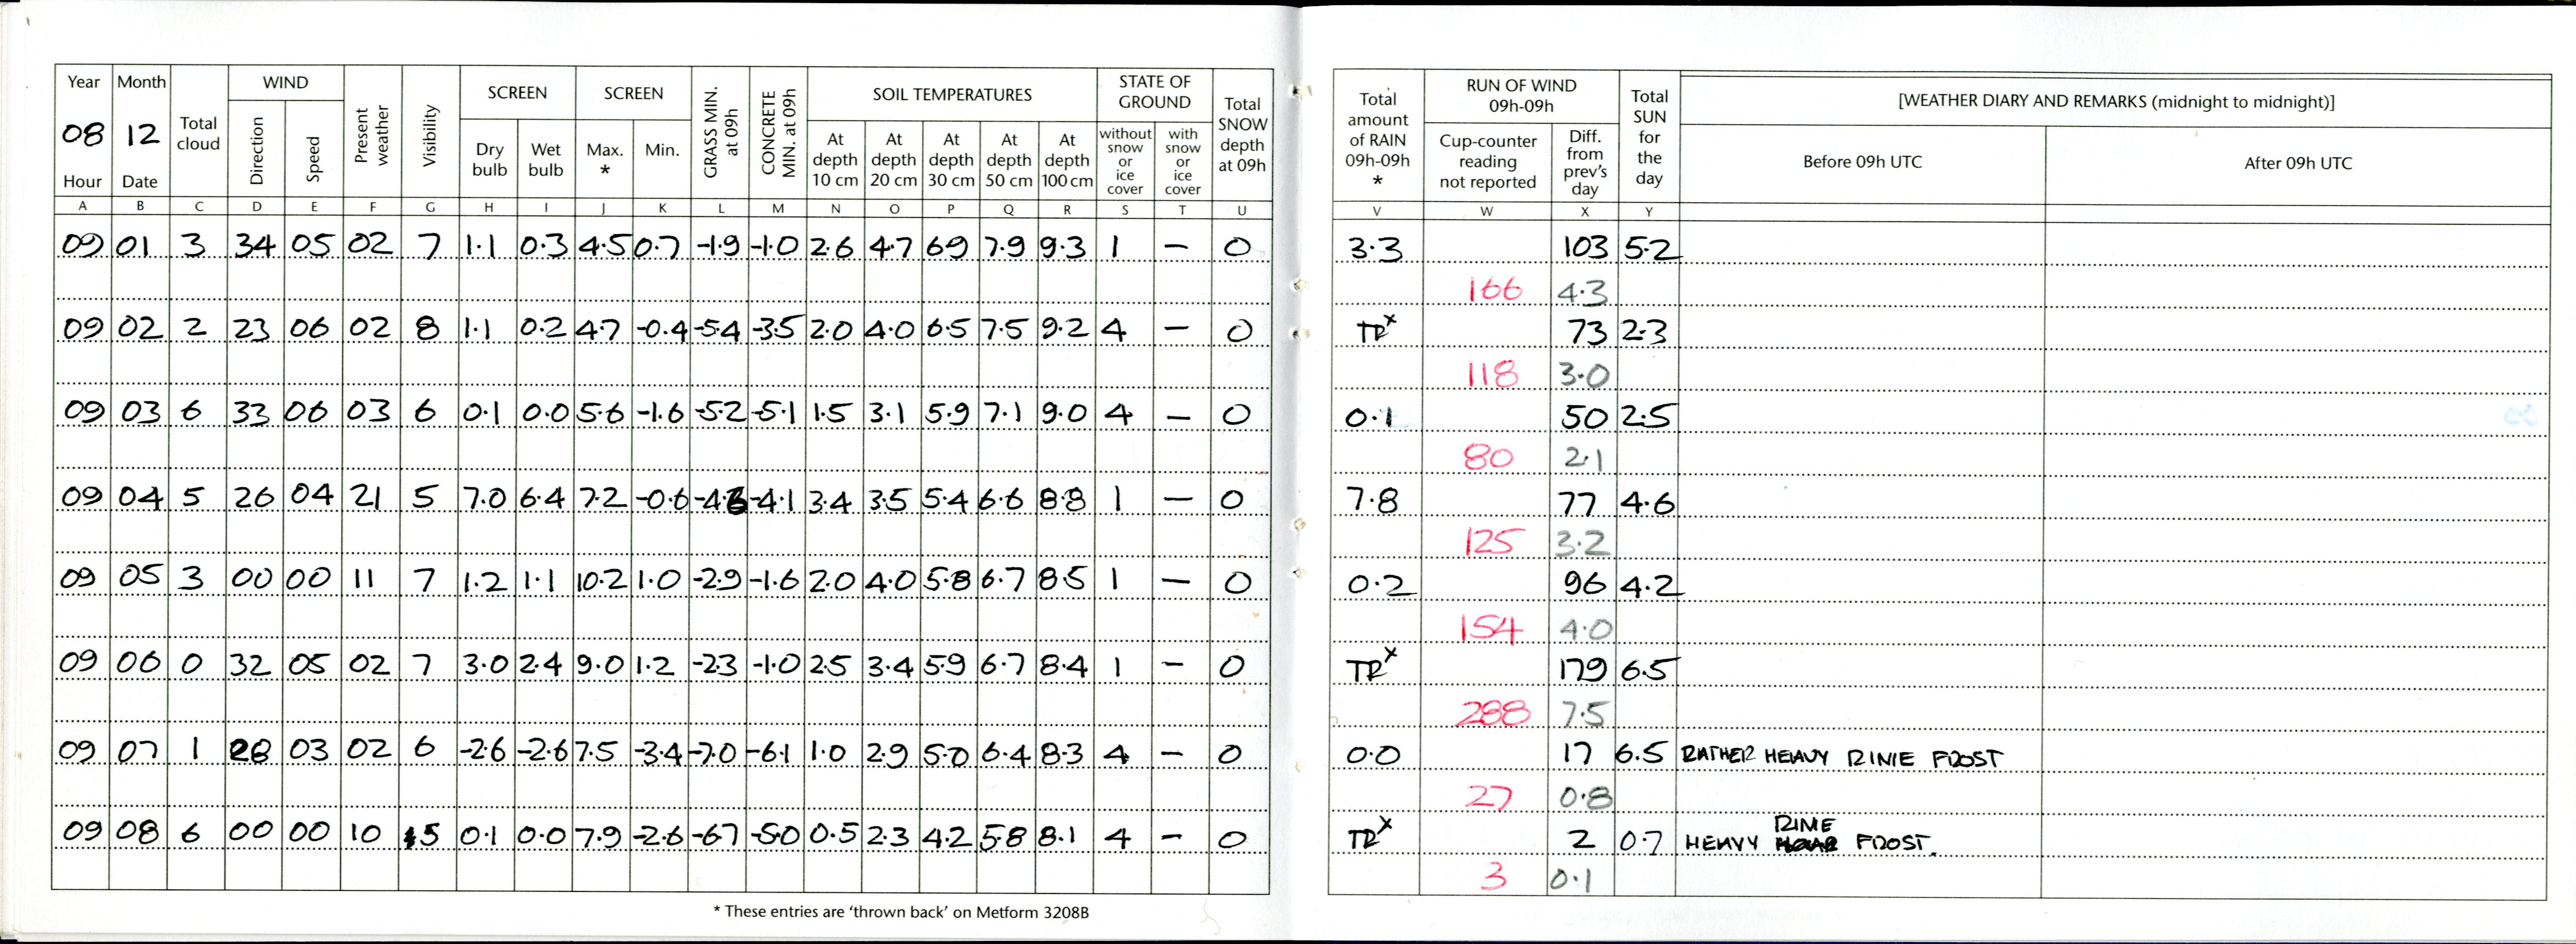 Year Month Total cloud WIND Present weather Visibility SCREEN SCREEN GRASS MIN. at 09h CONCRETE MIN. at 09h SOIL TEMPERATURES STATE OF GROUND Total SNOW depth at 09h Total amount of RAIN 09h-09h * RUN OF WIND 09h-09h Total SUN for the day [WEATHER DIARY AND REMARKS (midnight to midnight)]
08 12 Direction Speed Dry bulb Wet bulb Max. * Min. At depth 10 cm At depth 20 cm At depth 30 cm At depth 50 cm At depth 100 cm without snow or ice cover with snow or ice cover Cup-counter reading not reported Diff. from prev's day Before 09h UTC After 09h UTC
Hour Date
A B C D E F G H I J K L M N O P Q R S T U V W X Y
09 01 3 34 05 02 7 1.1 0.3 4.5 0.7 -1.9 -1.0 2.6 4.7 6.9 7.9 9.3 1 — 0 3.3 103 5.2
166 4.3
09 02 2 23 06 02 8 1.1 0.2 4.7 -0.4 -5.4 -3.5 2.0 4.0 6.5 7.5 9.2 4 — 0 TR x 73 2.3
118 3.0
09 03 6 33 06 03 6 0.1 0.0 5.6 -1.6 -5.2 -5.1 1.5 3.1 5.9 7.1 9.0 4 — 0 0.1 50 2.5
80 2.1
09 04 5 26 04 21 5 7.0 6.4 7.2 -0.6 -4.6 -4.1 3.4 3.5 5.4 6.6 8.8 1 — 0 7.8 77 4.6
125 3.2
09 05 3 00 00 11 7 1.2 1.1 10.2 1.0 -2.9 -1.6 2.0 4.0 5.8 6.7 8.5 1 — 0 0.2 96 4.2
154 4.0
09 06 0 32 05 02 7 3.0 2.4 9.0 1.2 -2.3 -1.0 2.5 3.4 5.9 6.7 8.4 1 — 0 TR x 179 6.5
288 7.5
09 07 1 28 03 02 6 -2.6 -2.6 7.5 -3.4 -7.0 -6.1 1.0 2.9 5.0 6.4 8.3 4 — 0 0.0 17 6.5 RATHER HEAVY RIME FROST
27 0.8
09 08 6 00 00 10 5 0.1 0.0 7.9 -2.6 -6.7 -5.0 0.5 2.3 4.2 5.8 8.1 4 — 0 TR x 2 0.7 HEAVY RIME FROST.
3 0.1
* These entries are 'thrown back' on Metform 3208B